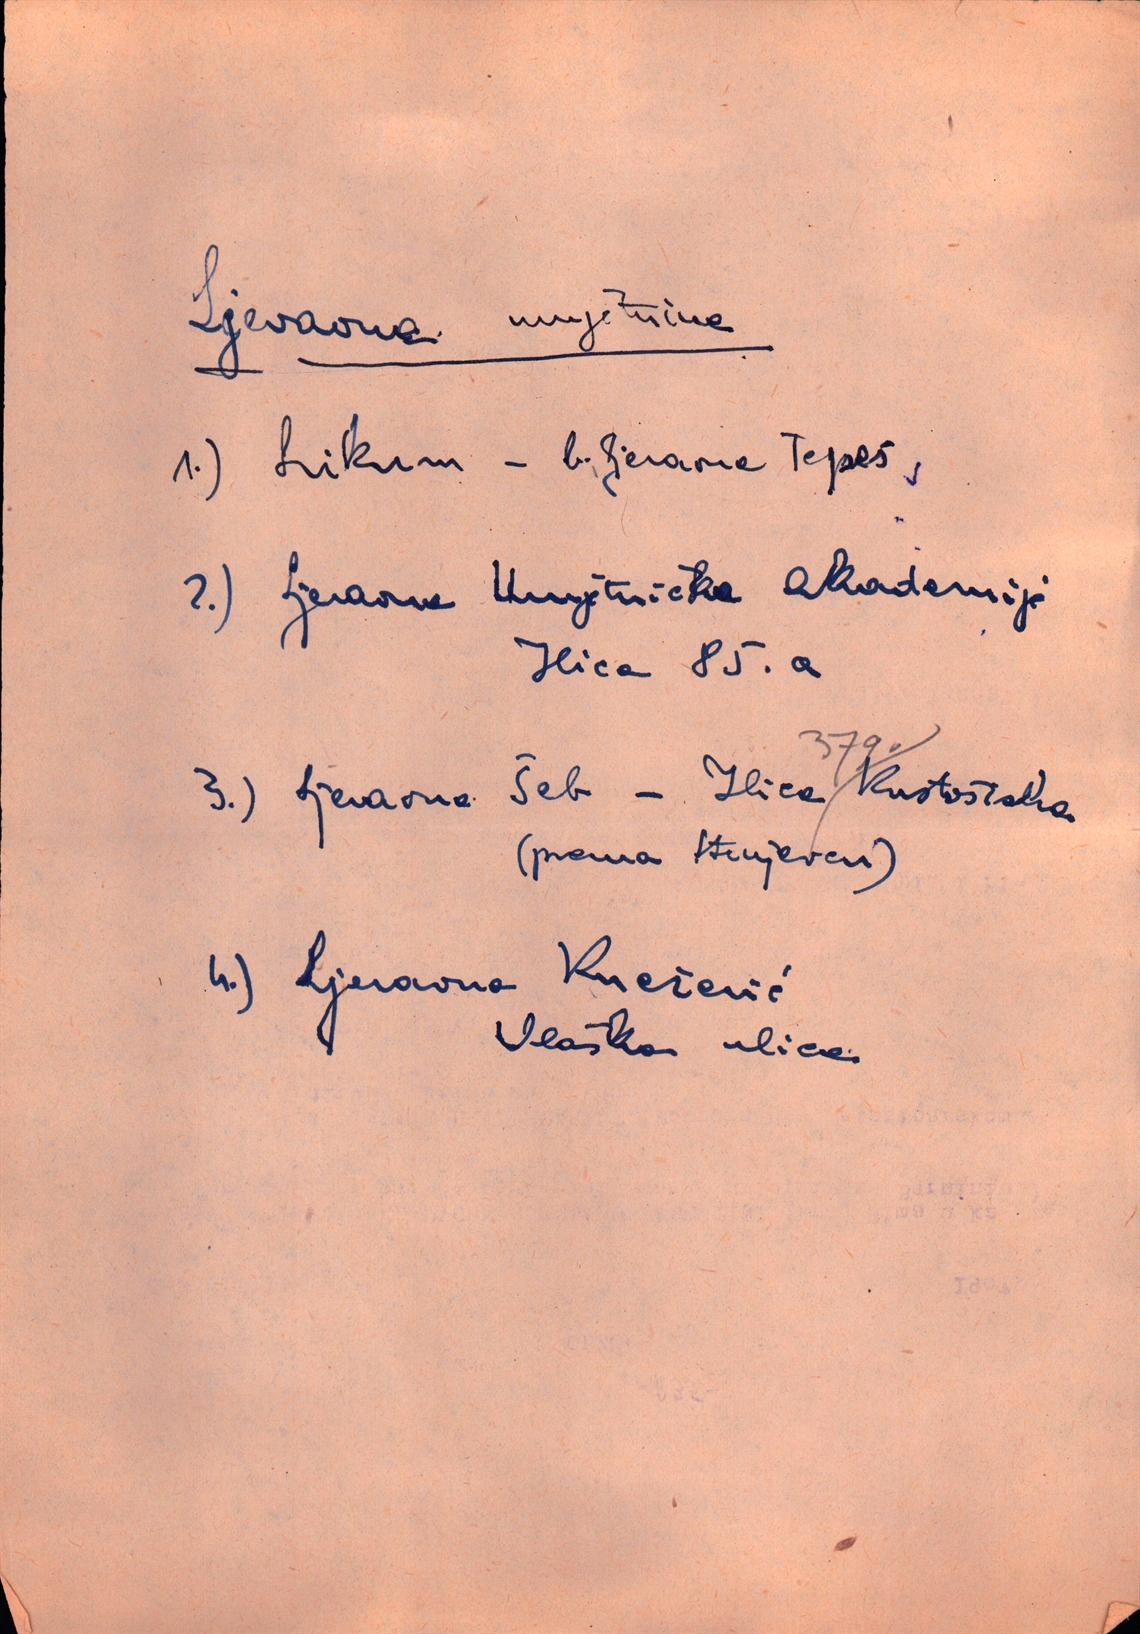 Ljevaona umjetnina
1.) Likum - b. Ljevaona Tepeš,
2.) Ljevaona Umjetničke akademije
Ilica 85.a
379.
3.) Ljevaona Šeb - Ilica Kustošička
(prema Stenjevcu)
4.) Ljevaona Knežević
Vlaška ulica